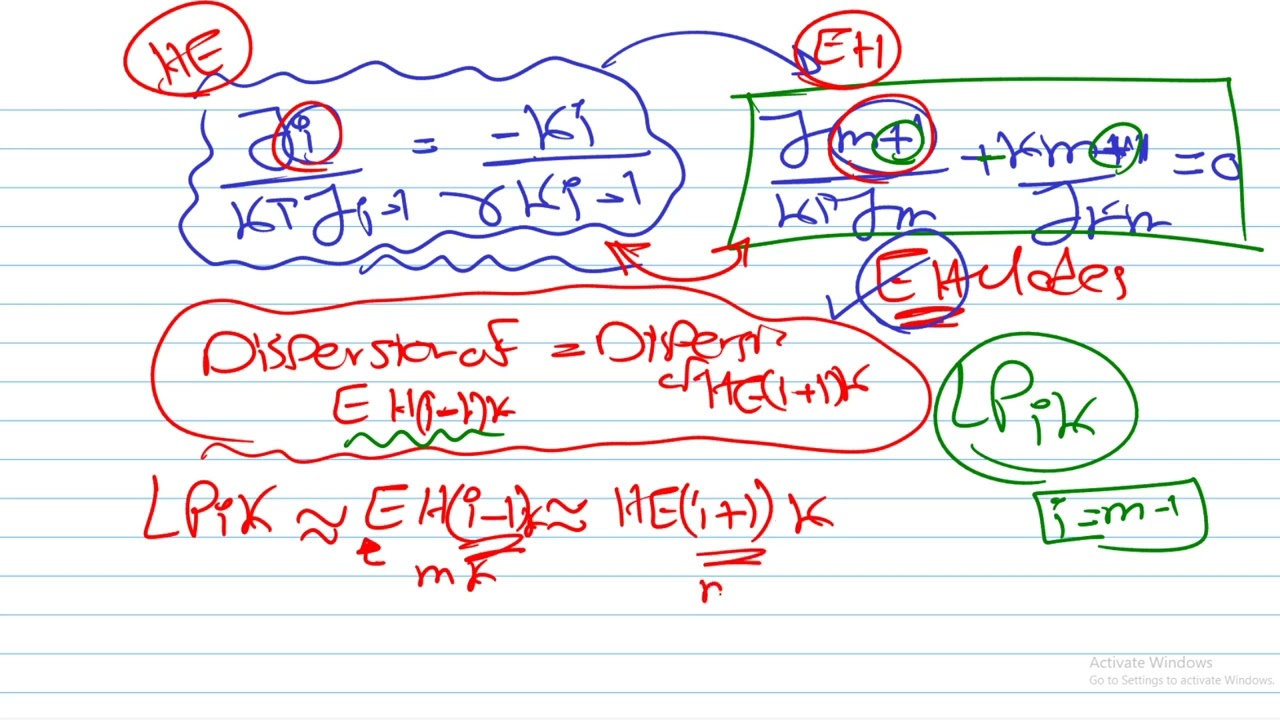 HE
EH
Ji = -Ki
KT Ji-1 γ Ki-1
Jm+1 + Km+1 = 0
KT Jm
EH Modes
Dispersion of = Dispersi
EH(i-1)K of HE(i+1)K
LPiK
LPiK ≈ EH(i-1)K ≈ HE(i+1) K
i=m-1
mK
Activate Windows
Go to Settings to activate Windows.